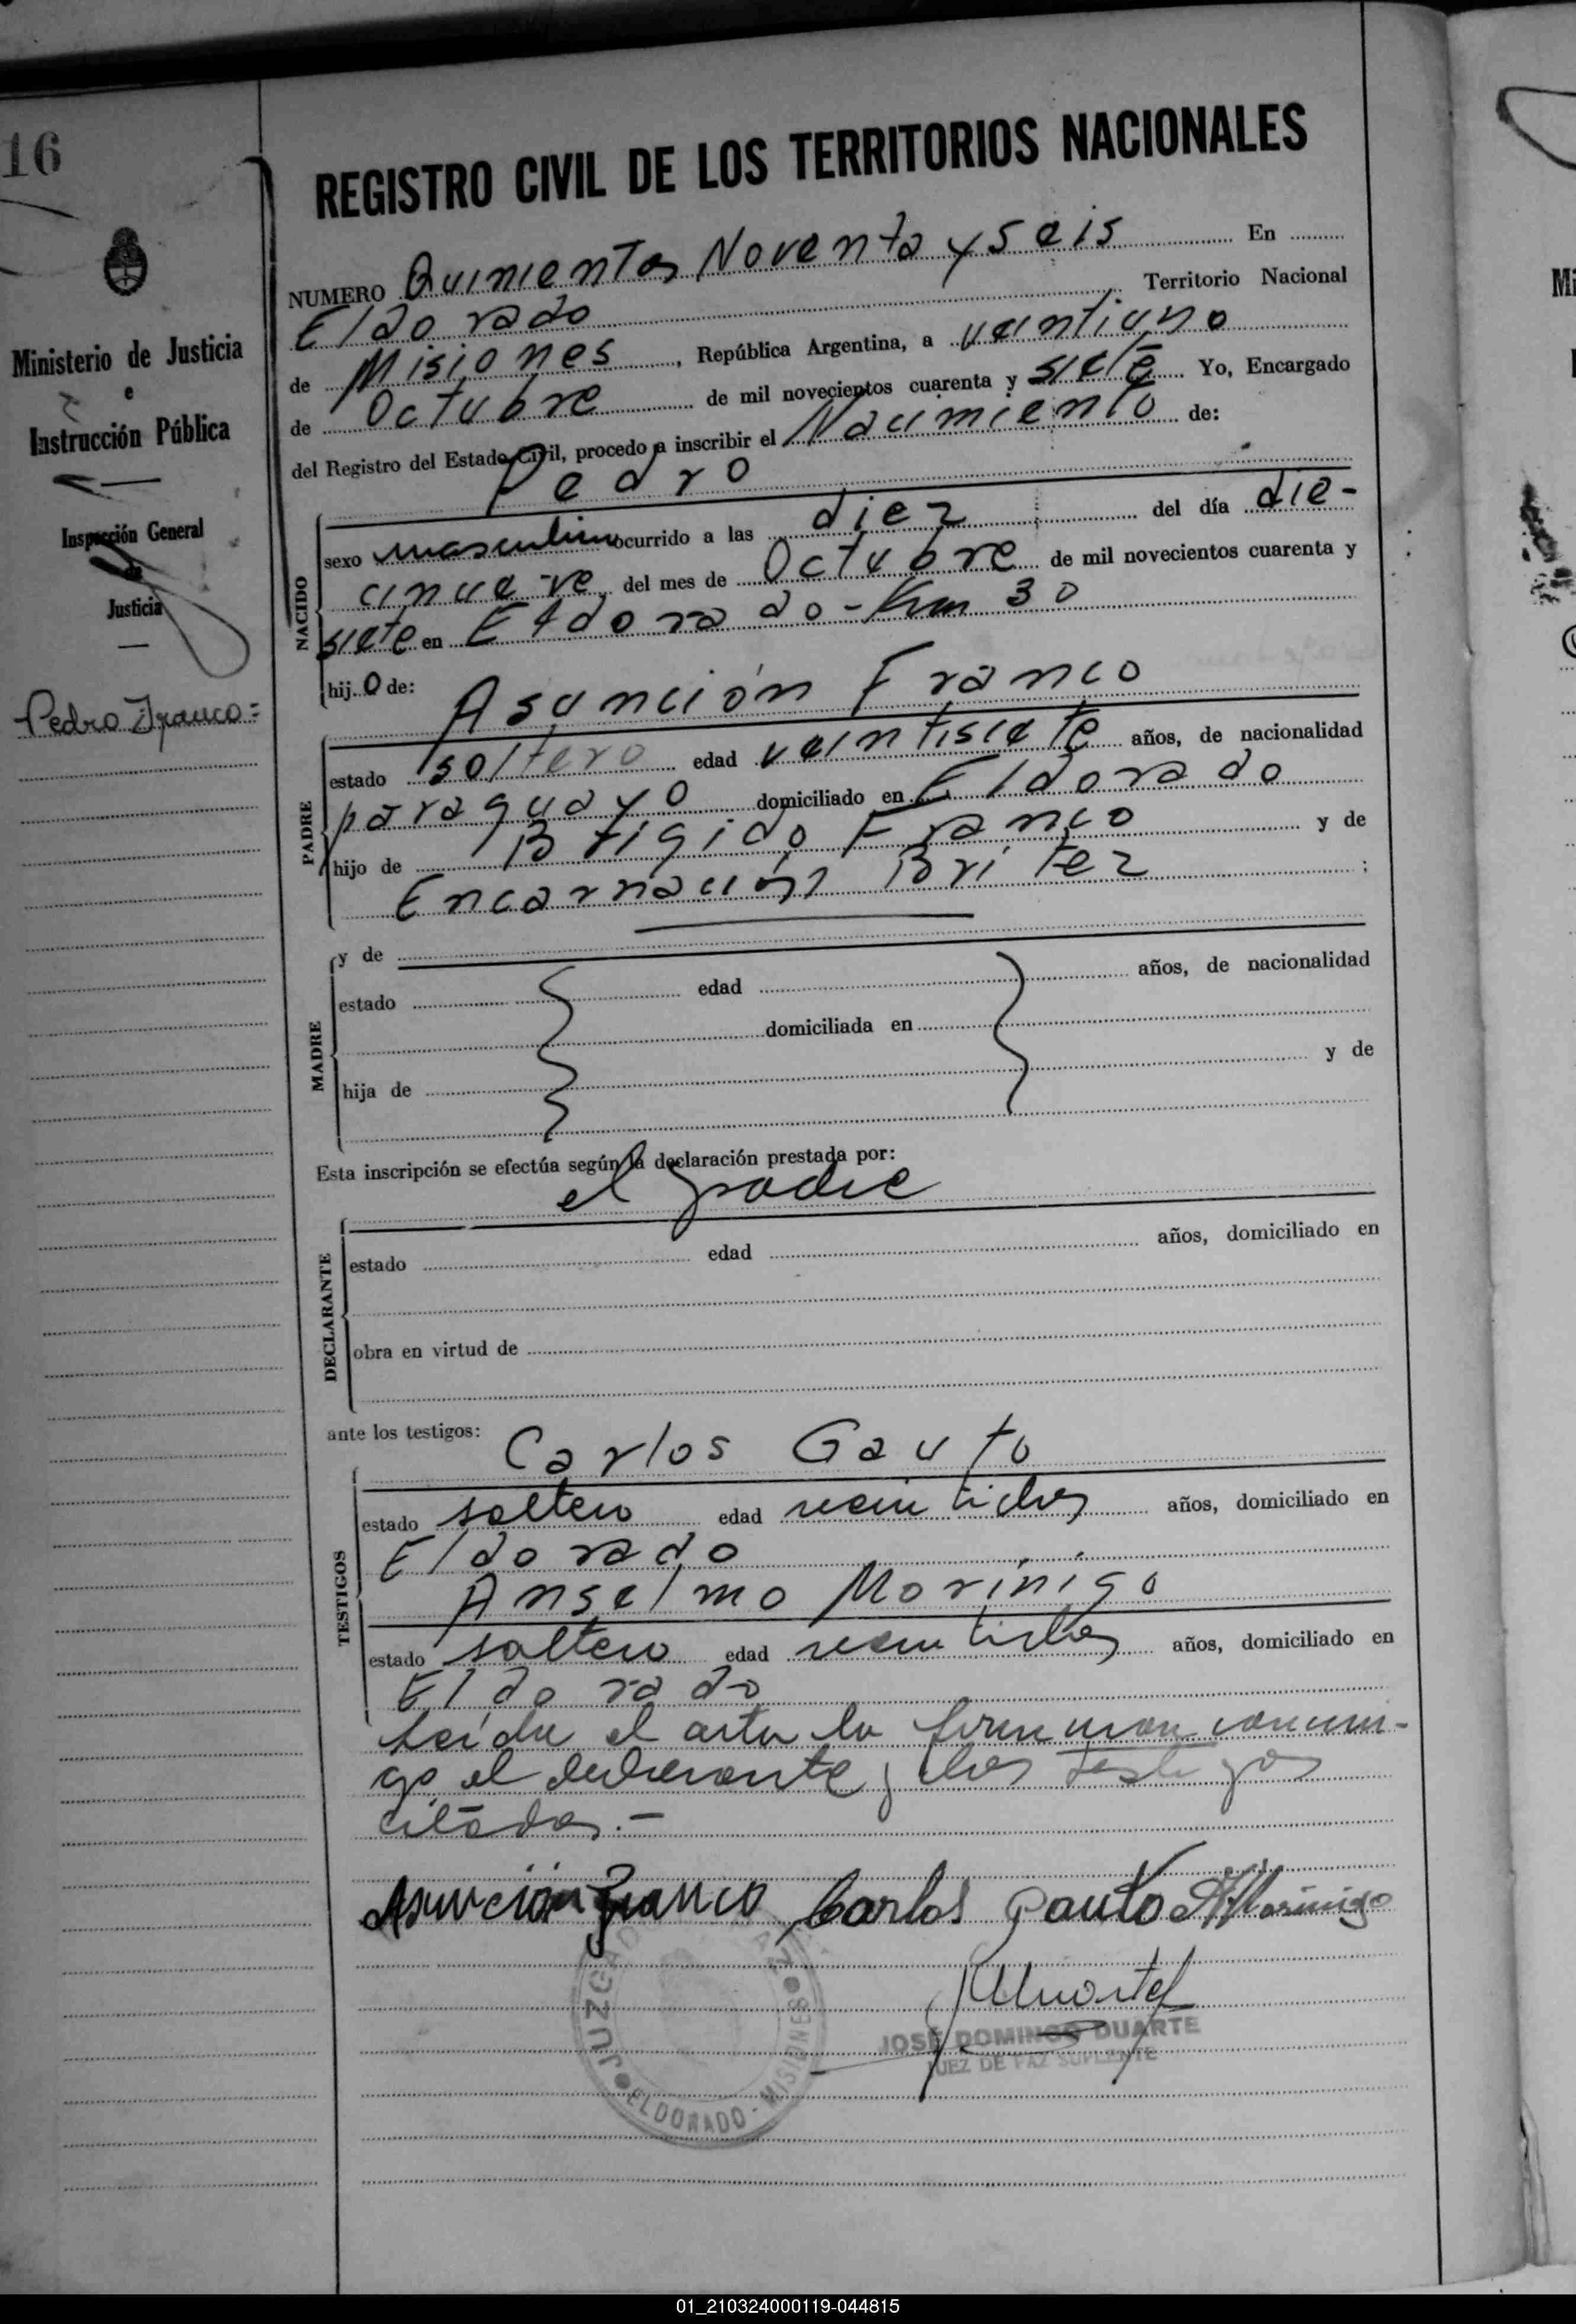 16
REGISTRO CIVIL DE LOS TERRITORIOS NACIONALES
Ministerio de Justicia
e
Instrucción Pública
Inspección General
de
Justicia
Pedro Franco=
NUMERO Quinientos Noventa y Seis En
Eldorado Territorio Nacional
de Misiones, República Argentina, a veintiuno
de Octubre de mil novecientos cuarenta y siete Yo, Encargado
del Registro del Estado Civil, procedo a inscribir el Nacimiento de:
Pedro
NACIDO
sexo masculino ocurrido a las diez del día die-
cinueve, del mes de Octubre de mil novecientos cuarenta y
siete en Eldorado-Km 30
hij.o de:
Asunción Franco
PADRE
estado soltero edad veintisiete años, de nacionalidad
paraguayo domiciliado en Eldorado
hijo de Brigido Franco y de
Encarnación Britez ;
MADRE
y de
estado edad años, de nacionalidad
domiciliada en
hija de y de
Esta inscripción se efectúa según la declaración prestada por:
el padre
DECLARANTE
estado edad años, domiciliado en
obra en virtud de
ante los testigos:
Carlos Gauto
TESTIGOS
estado soltero edad años, domiciliado en
Eldorado
Anselmo Morinigo
estado soltero edad años, domiciliado en
Eldorado
Leída el acta la firman conmi-
go el declarante y los testigos
citados.-
Asunción Franco Carlos Gauto AMorinigo
JUZGADO DE PAZ
ELDORADO - MISIONES
JOSÉ DOMINGO DUARTE
JUEZ DE PAZ SUPLENTE
Mi
01_210324000119-044815